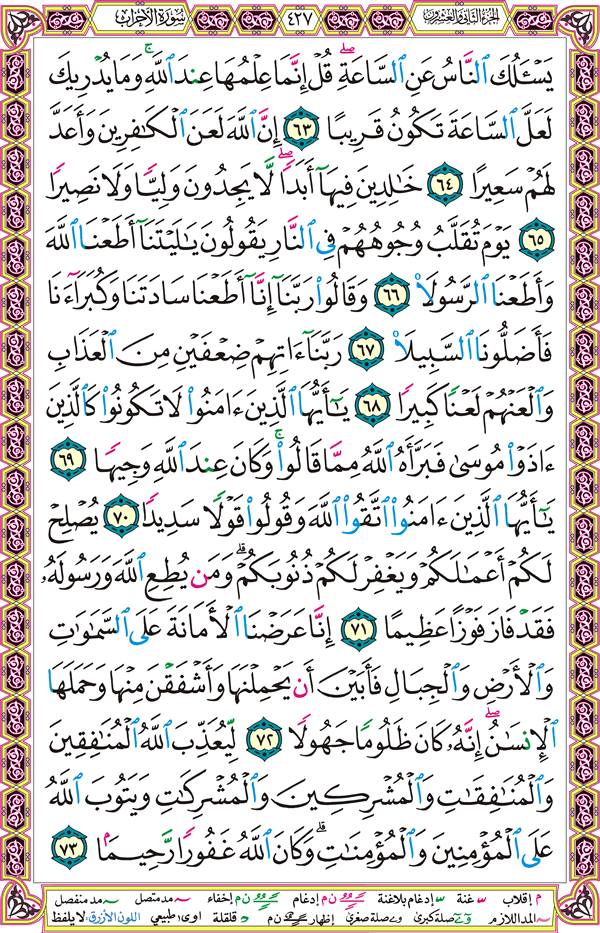 سورة الأحزاب ٤٢٧ الجزء الثاني والعشرون
يَسْـَٔلُكَ ٱلنَّاسُ عَنِ ٱلسَّاعَةِ ۖ قُلْ إِنَّمَا عِلْمُهَا عِندَ ٱللَّهِ ۚ وَمَا يُدْرِيكَ
لَعَلَّ ٱلسَّاعَةَ تَكُونُ قَرِيبًا ٦٣ إِنَّ ٱللَّهَ لَعَنَ ٱلْكَٰفِرِينَ وَأَعَدَّ
لَهُمْ سَعِيرًا ٦٤ خَٰلِدِينَ فِيهَآ أَبَدًا ۖ لَّا يَجِدُونَ وَلِيًّا وَلَا نَصِيرًا
٦٥ يَوْمَ تُقَلَّبُ وُجُوهُهُمْ فِى ٱلنَّارِ يَقُولُونَ يَٰلَيْتَنَآ أَطَعْنَا ٱللَّهَ
وَأَطَعْنَا ٱلرَّسُولَا۠ ٦٦ وَقَالُوا۟ رَبَّنَآ إِنَّآ أَطَعْنَا سَادَتَنَا وَكُبَرَآءَنَا
فَأَضَلُّونَا ٱلسَّبِيلَا۠ ٦٧ رَبَّنَآ ءَاتِهِمْ ضِعْفَيْنِ مِنَ ٱلْعَذَابِ
وَٱلْعَنْهُمْ لَعْنًا كَبِيرًا ٦٨ يَٰٓأَيُّهَا ٱلَّذِينَ ءَامَنُوا۟ لَا تَكُونُوا۟ كَٱلَّذِينَ
ءَاذَوْا۟ مُوسَىٰ فَبَرَّأَهُ ٱللَّهُ مِمَّا قَالُوا۟ ۚ وَكَانَ عِندَ ٱللَّهِ وَجِيهًا ٦٩
يَٰٓأَيُّهَا ٱلَّذِينَ ءَامَنُوا۟ ٱتَّقُوا۟ ٱللَّهَ وَقُولُوا۟ قَوْلًا سَدِيدًا ٧٠ يُصْلِحْ
لَكُمْ أَعْمَٰلَكُمْ وَيَغْفِرْ لَكُمْ ذُنُوبَكُمْ ۗ وَمَن يُطِعِ ٱللَّهَ وَرَسُولَهُۥ
فَقَدْ فَازَ فَوْزًا عَظِيمًا ٧١ إِنَّا عَرَضْنَا ٱلْأَمَانَةَ عَلَى ٱلسَّمَٰوَٰتِ
وَٱلْأَرْضِ وَٱلْجِبَالِ فَأَبَيْنَ أَن يَحْمِلْنَهَا وَأَشْفَقْنَ مِنْهَا وَحَمَلَهَا
ٱلْإِنسَٰنُ ۖ إِنَّهُۥ كَانَ ظَلُومًا جَهُولًا ٧٢ لِّيُعَذِّبَ ٱللَّهُ ٱلْمُنَٰفِقِينَ
وَٱلْمُنَٰفِقَٰتِ وَٱلْمُشْرِكِينَ وَٱلْمُشْرِكَٰتِ وَيَتُوبَ ٱللَّهُ
عَلَى ٱلْمُؤْمِنِينَ وَٱلْمُؤْمِنَٰتِ ۗ وَكَانَ ٱللَّهُ غَفُورًا رَّحِيمًا ٧٣
م إقلاب غنة إدغام بلاغنة ن م إدغام ن م إخفاء مد متصل مد منفصل
المد اللازم صلة كبرى صلة صغرى إظهار ن م قلقلة اوى طبيعي اللون الأزرق: لا يلفظ